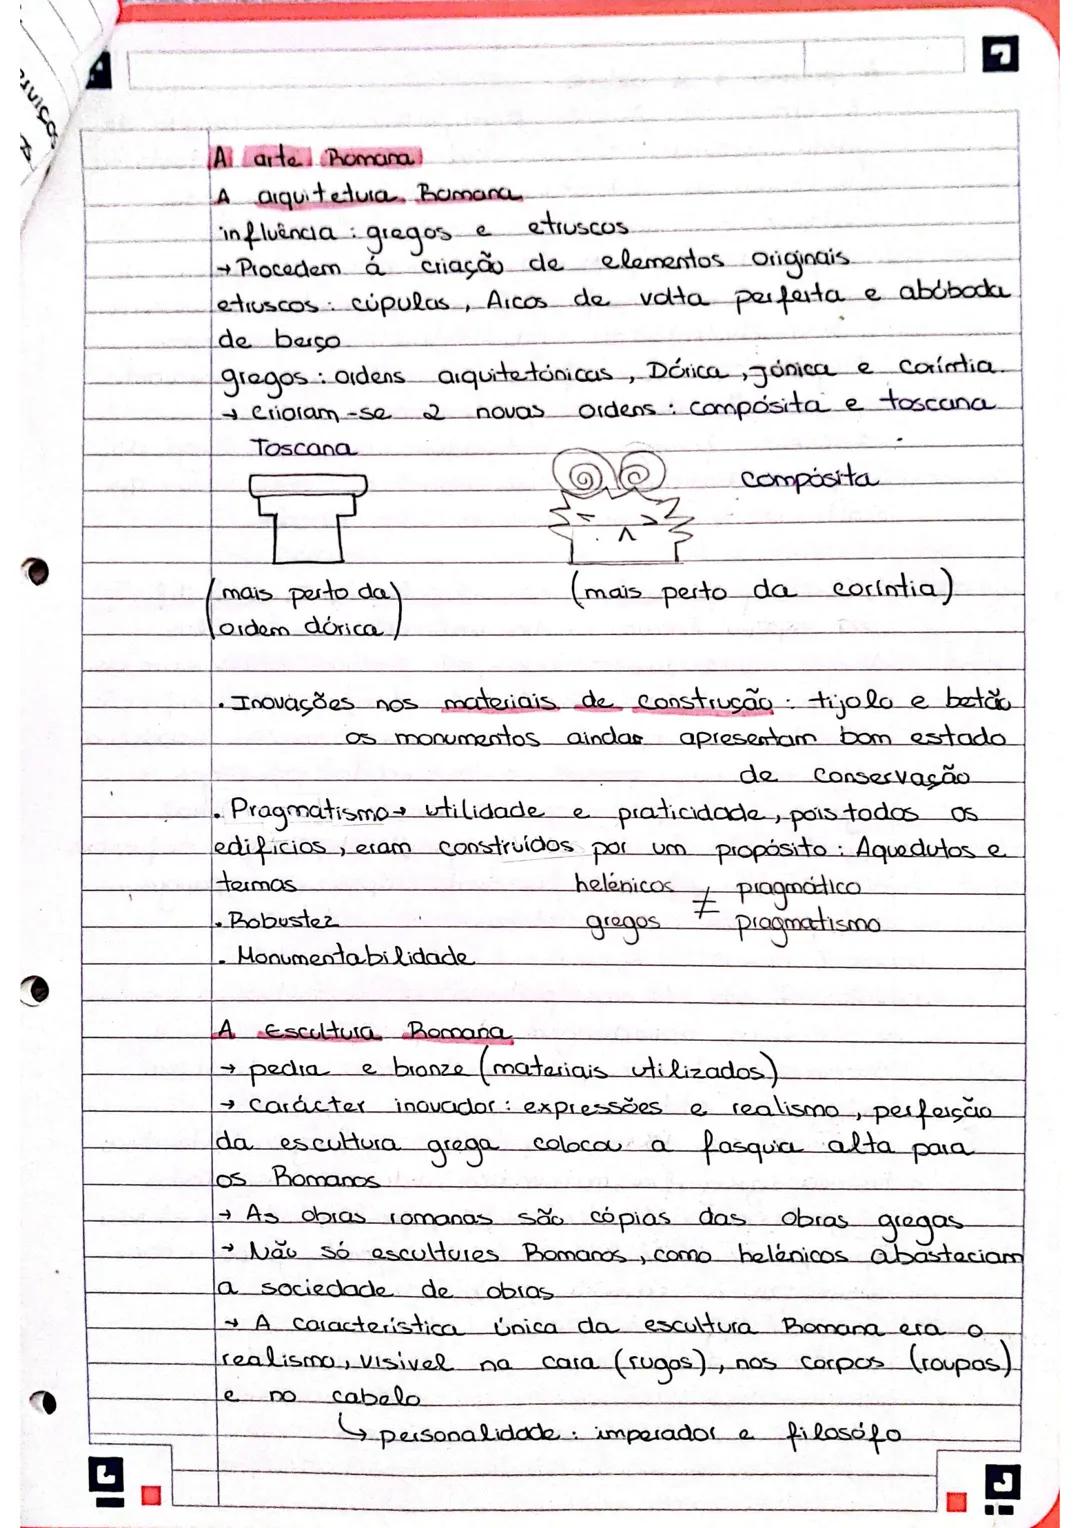 A arte Romana
A arquitetura Romana
influência: gregos e etruscos
→ Procedem á criação de elementos originais
etruscos: cúpulas, Arcos de volta perfeita e abóboda
de berço
gregos: ordens arquitetónicas, Dórica, jónica e coríntia
→ criaram-se 2 novas ordens: compósita e toscana
Toscana
compósita
(mais perto da ordem dórica)
(mais perto da coríntia)
. Inovações nos materiais de construção: tijolo e betão
os monumentos aindas apresentam bom estado
de conservação
. Pragmatismo→ utilidade e praticidade, pois todos os
edifícios, eram construídos por um propósito: Aquedutos e
termas
helénicos ≠ pragmático
gregos pragmatismo
. Robustez
. Monumentabilidade
A Escultura Romana
→ pedra e bronze (materiais utilizados)
→ carácter inovador: expressões e realismo, perfeição
da escultura grega colocou a fasquia alta para
os Romanos
→ As obras romanas são cópias das obras gregas
→ Não só escultures Romanos, como helénicos abasteciam
a sociedade de obras
→ A característica única da escultura Romana era o
realismo, visivel na cara (rugas), nos corpos (roupas)
e no cabelo
↳ personalidade: imperador e filosófo